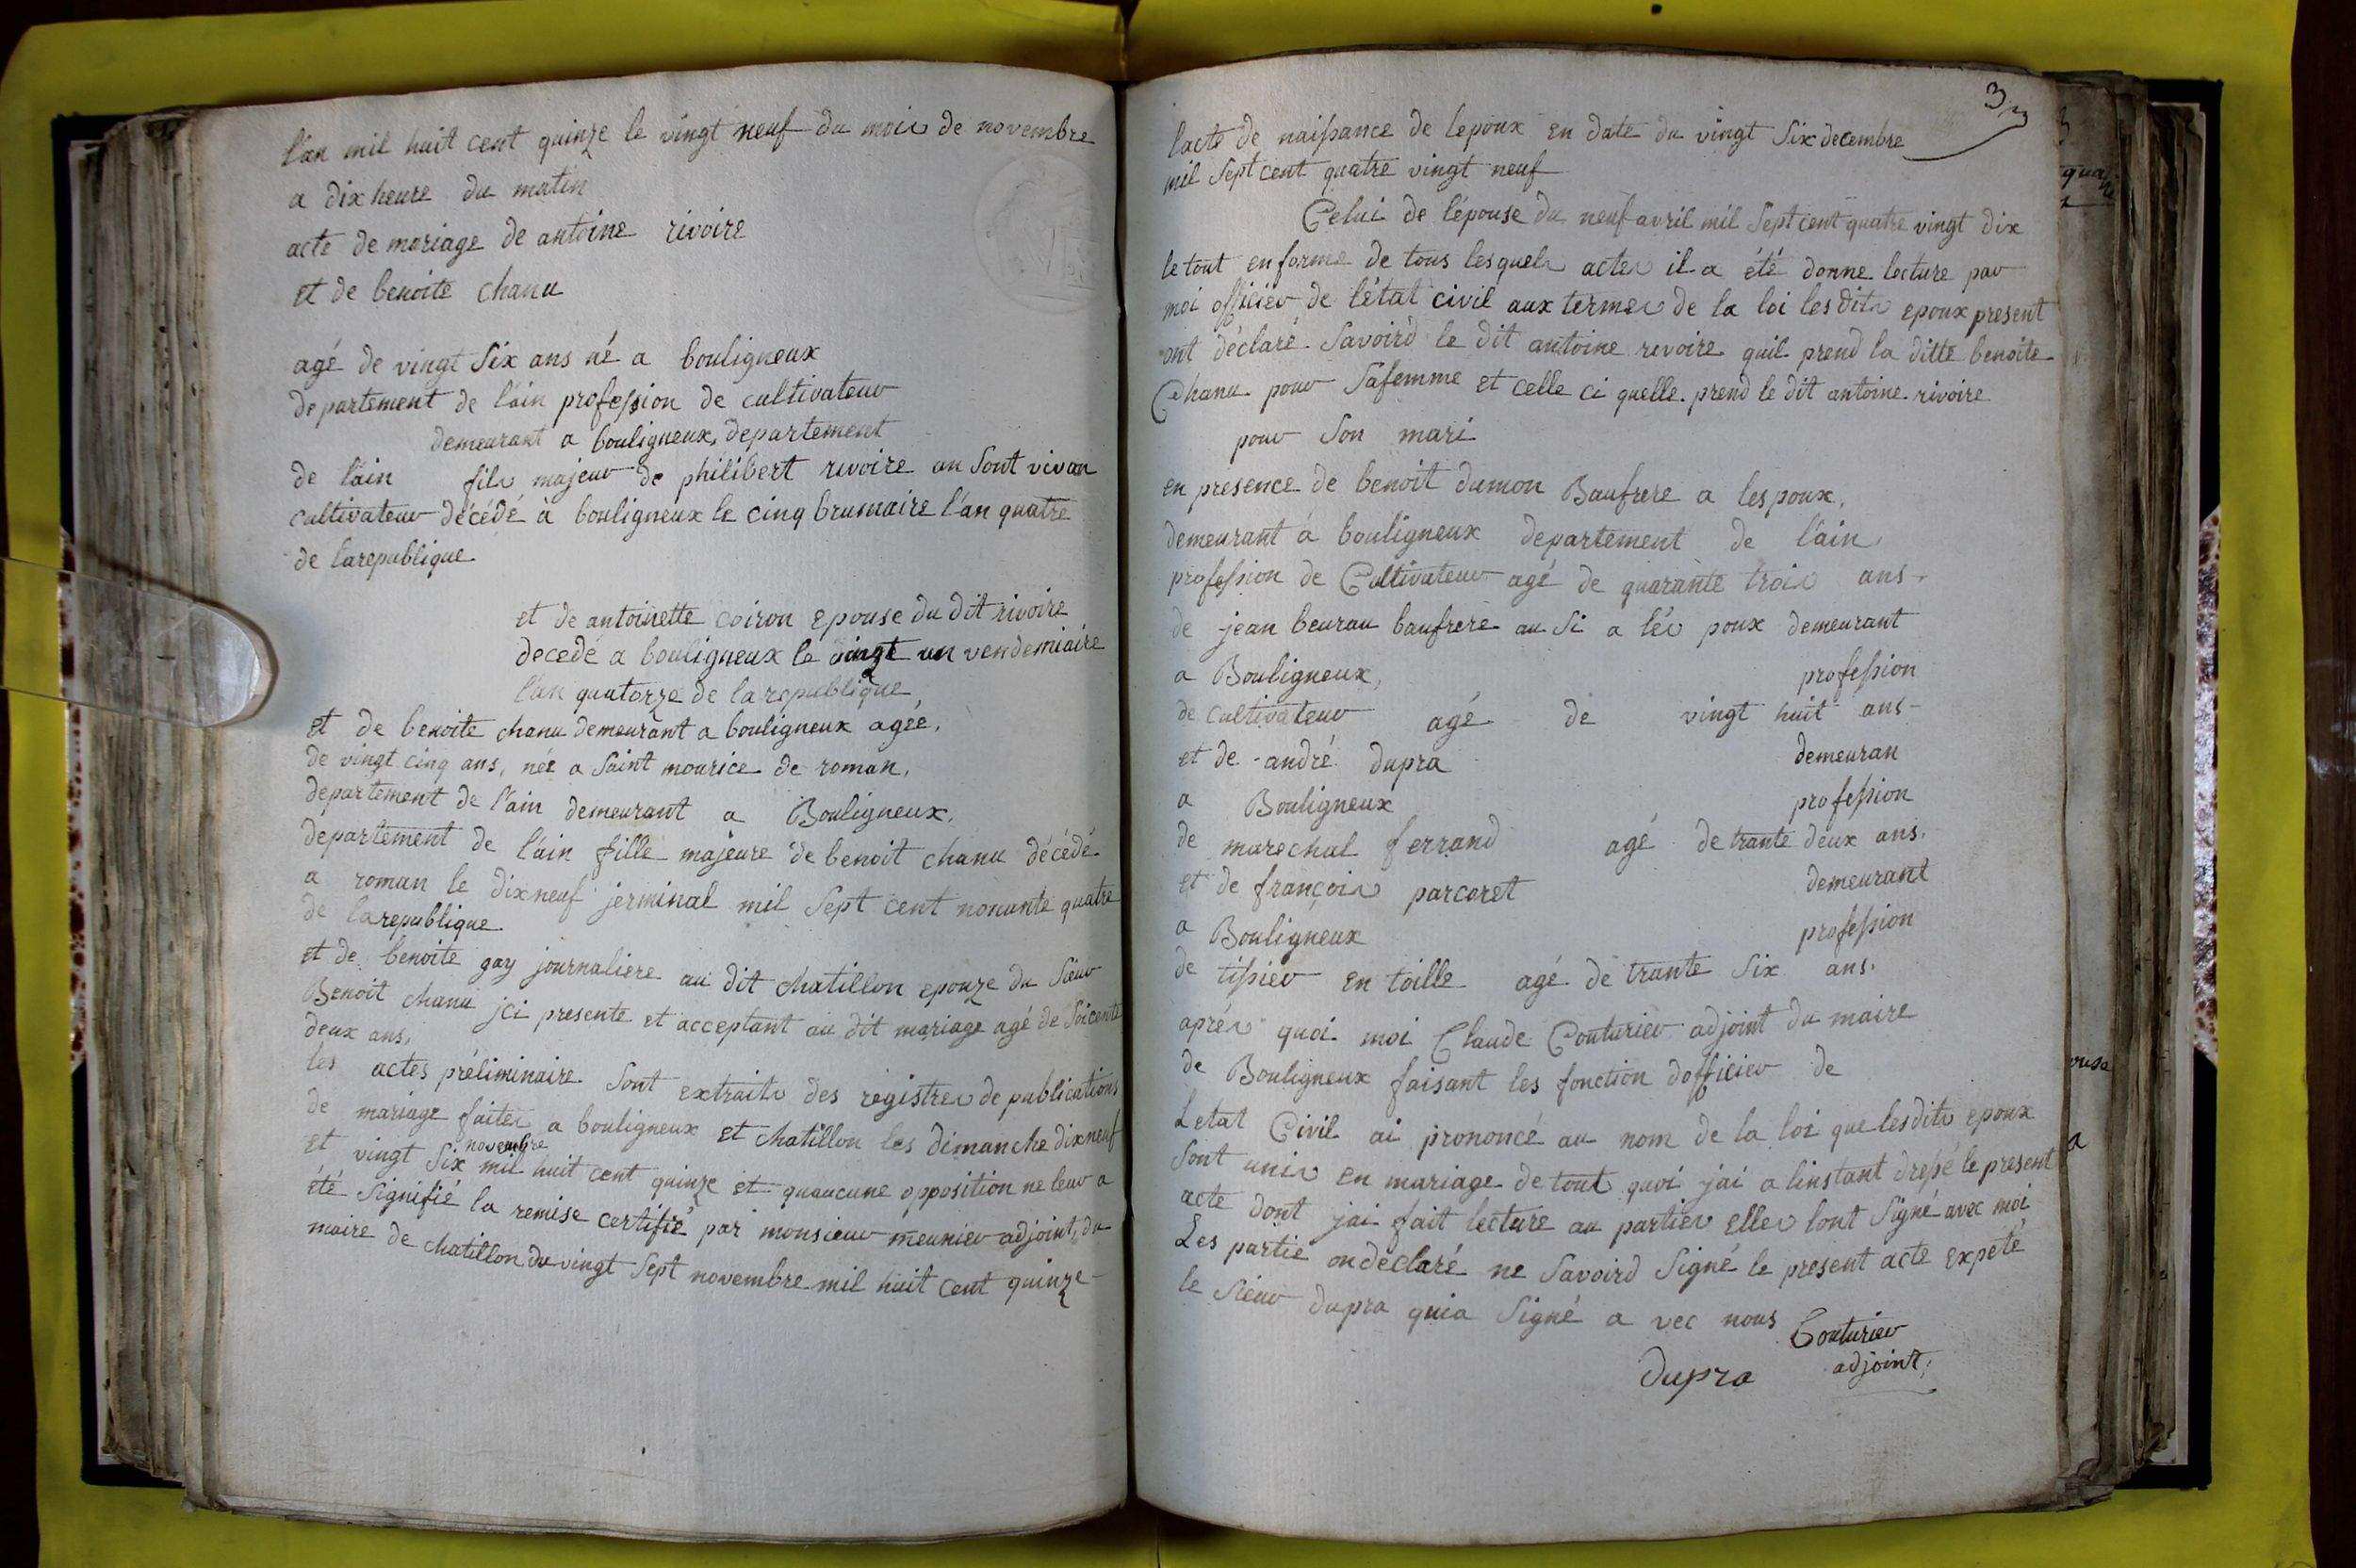 l'an mil huit cent quinze le vingt neuf du mois de novembre
a dix heure du matin
acte de mariage de antoine rivoire
et de benoite chanu
agé de vingt Six ans né a bouligneux
departement de l'ain profession de cultivateur
demeurant a bouligneux, departement
de l'ain fils majeur de philibert rivoire an Sont vivan
cultivateur décédé à bouligneux le cinq brumaire l'an quatre
de larepublique
et de antoinette coiron epouse du dit rivoire
decedé a bouligneux le vingt un vendemiaire
l'an quatorze de la republique
et de benoite chanu demeurant a bouligneux agée,
de vingt cinq ans, née a Saint mourice de roman,
departement de l'ain demeurant a Bouligneux,
département de l'ain fille majeure de benoit chanu décédé
a roman le dixneuf jerminal mil Sept cent nonante quatre
de larepublique
et de benoite gay journaliere au dit chatillon epouze du Sieur
Benoit chanu jci presente et acceptant au dit mariage agé de Soicente
deux ans,
les actes préliminaire Sont extraits des registres de publications
de mariage faites a bouligneux et chatillon les dimanche dixneuf
novembre
et vingt Six mil huit cent quinze et quaucune opposition ne leur a
été Signifié la remise certifié par monsieur meunier adjoint, du
maire de chatillon du vingt Sept novembre mil huit cent quinze
3
lacte de naissance de lepoux en date du vingt Six decembre
mil Sept cent quatre vingt neuf
Celui de l'épouse du neuf avril mil Sept cent quatre vingt dix
le tout en forme de tous lesquels actes il a été donne lecture par
moi officier de l'état civil aux termes de la loi les dits epoux present
ont déclaré Savoird le dit antoine rivoire quil prend la ditte benoite
Chanu pour Safemme et celle ci quelle prend le dit antoine rivoire
pour Son mari
en presence de benoit dumon Baufrere a lespoux,
demeurant à bouligneux departement de l'ain,
profession de Cultivateur agé de quarante trois ans.
de jean beurau baufrere au Si a lés poux demeurant
a Bouligneux, profession
de cultivateur agé de vingt huit ans
et de andré dupra demeuran
a Bouligneux profession
de marechal ferrand agé de trante deux ans.
et de françois parcoret demeurant
a Bouligneux profession
de tissier en toille agé de trante Six ans.
aprés quoi moi Claude Couturier adjoint du maire
de Bouligneux faisant les fonction dofficier de
Letat Civil ai prononcé au nom de la loi que lesdits epoux
Sont unis en mariage de tout quoi jai a linstant dressé le present
acte dont jai fait lecture au parties elles lont Signé avec moi
Les partie ondéclaré ne Savoird Signé le present acte expeté
le Sieur dupra quia Signé a vec nous
Couturier
dupra adjoint,